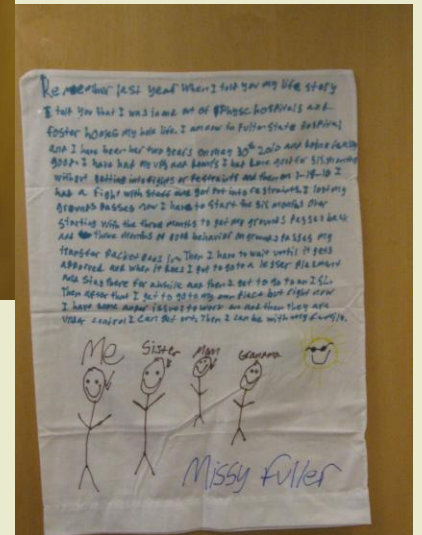 Remember last year when I told you my life story
I told you that I was in and out of Physc hospitals and
foster homes my hole life. I am now in Fulton State Hospital
and I have been here two years on may 30th 2010 and
good. I have had my ups and downs I had gone six months
without getting into fights or restraints and then on 1-18-10 I
had a fight with staff and got put into restraints I lost my
grounds passes now I have to start the six months over
starting with the three months to get my grounds passes back
and three months of good behavior on grounds passes my
transfer packet goes in. Then I have to wait until it gets
approved and when it does I got to go to a lesser placement
and stay there for awhile and then I get to go to an ISL.
Then after that I get to go to my own place but right now
I have some anger issues to work on and then they are
under control I can get out. Then I can be with my family.
Me Sister Mom Grandma
Missy Fuller